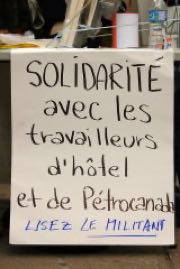 SOLIDARITÉ
avec les
travailleurs
d'hôtel
et de Pétrocanada
LISEZ LE MILITANT